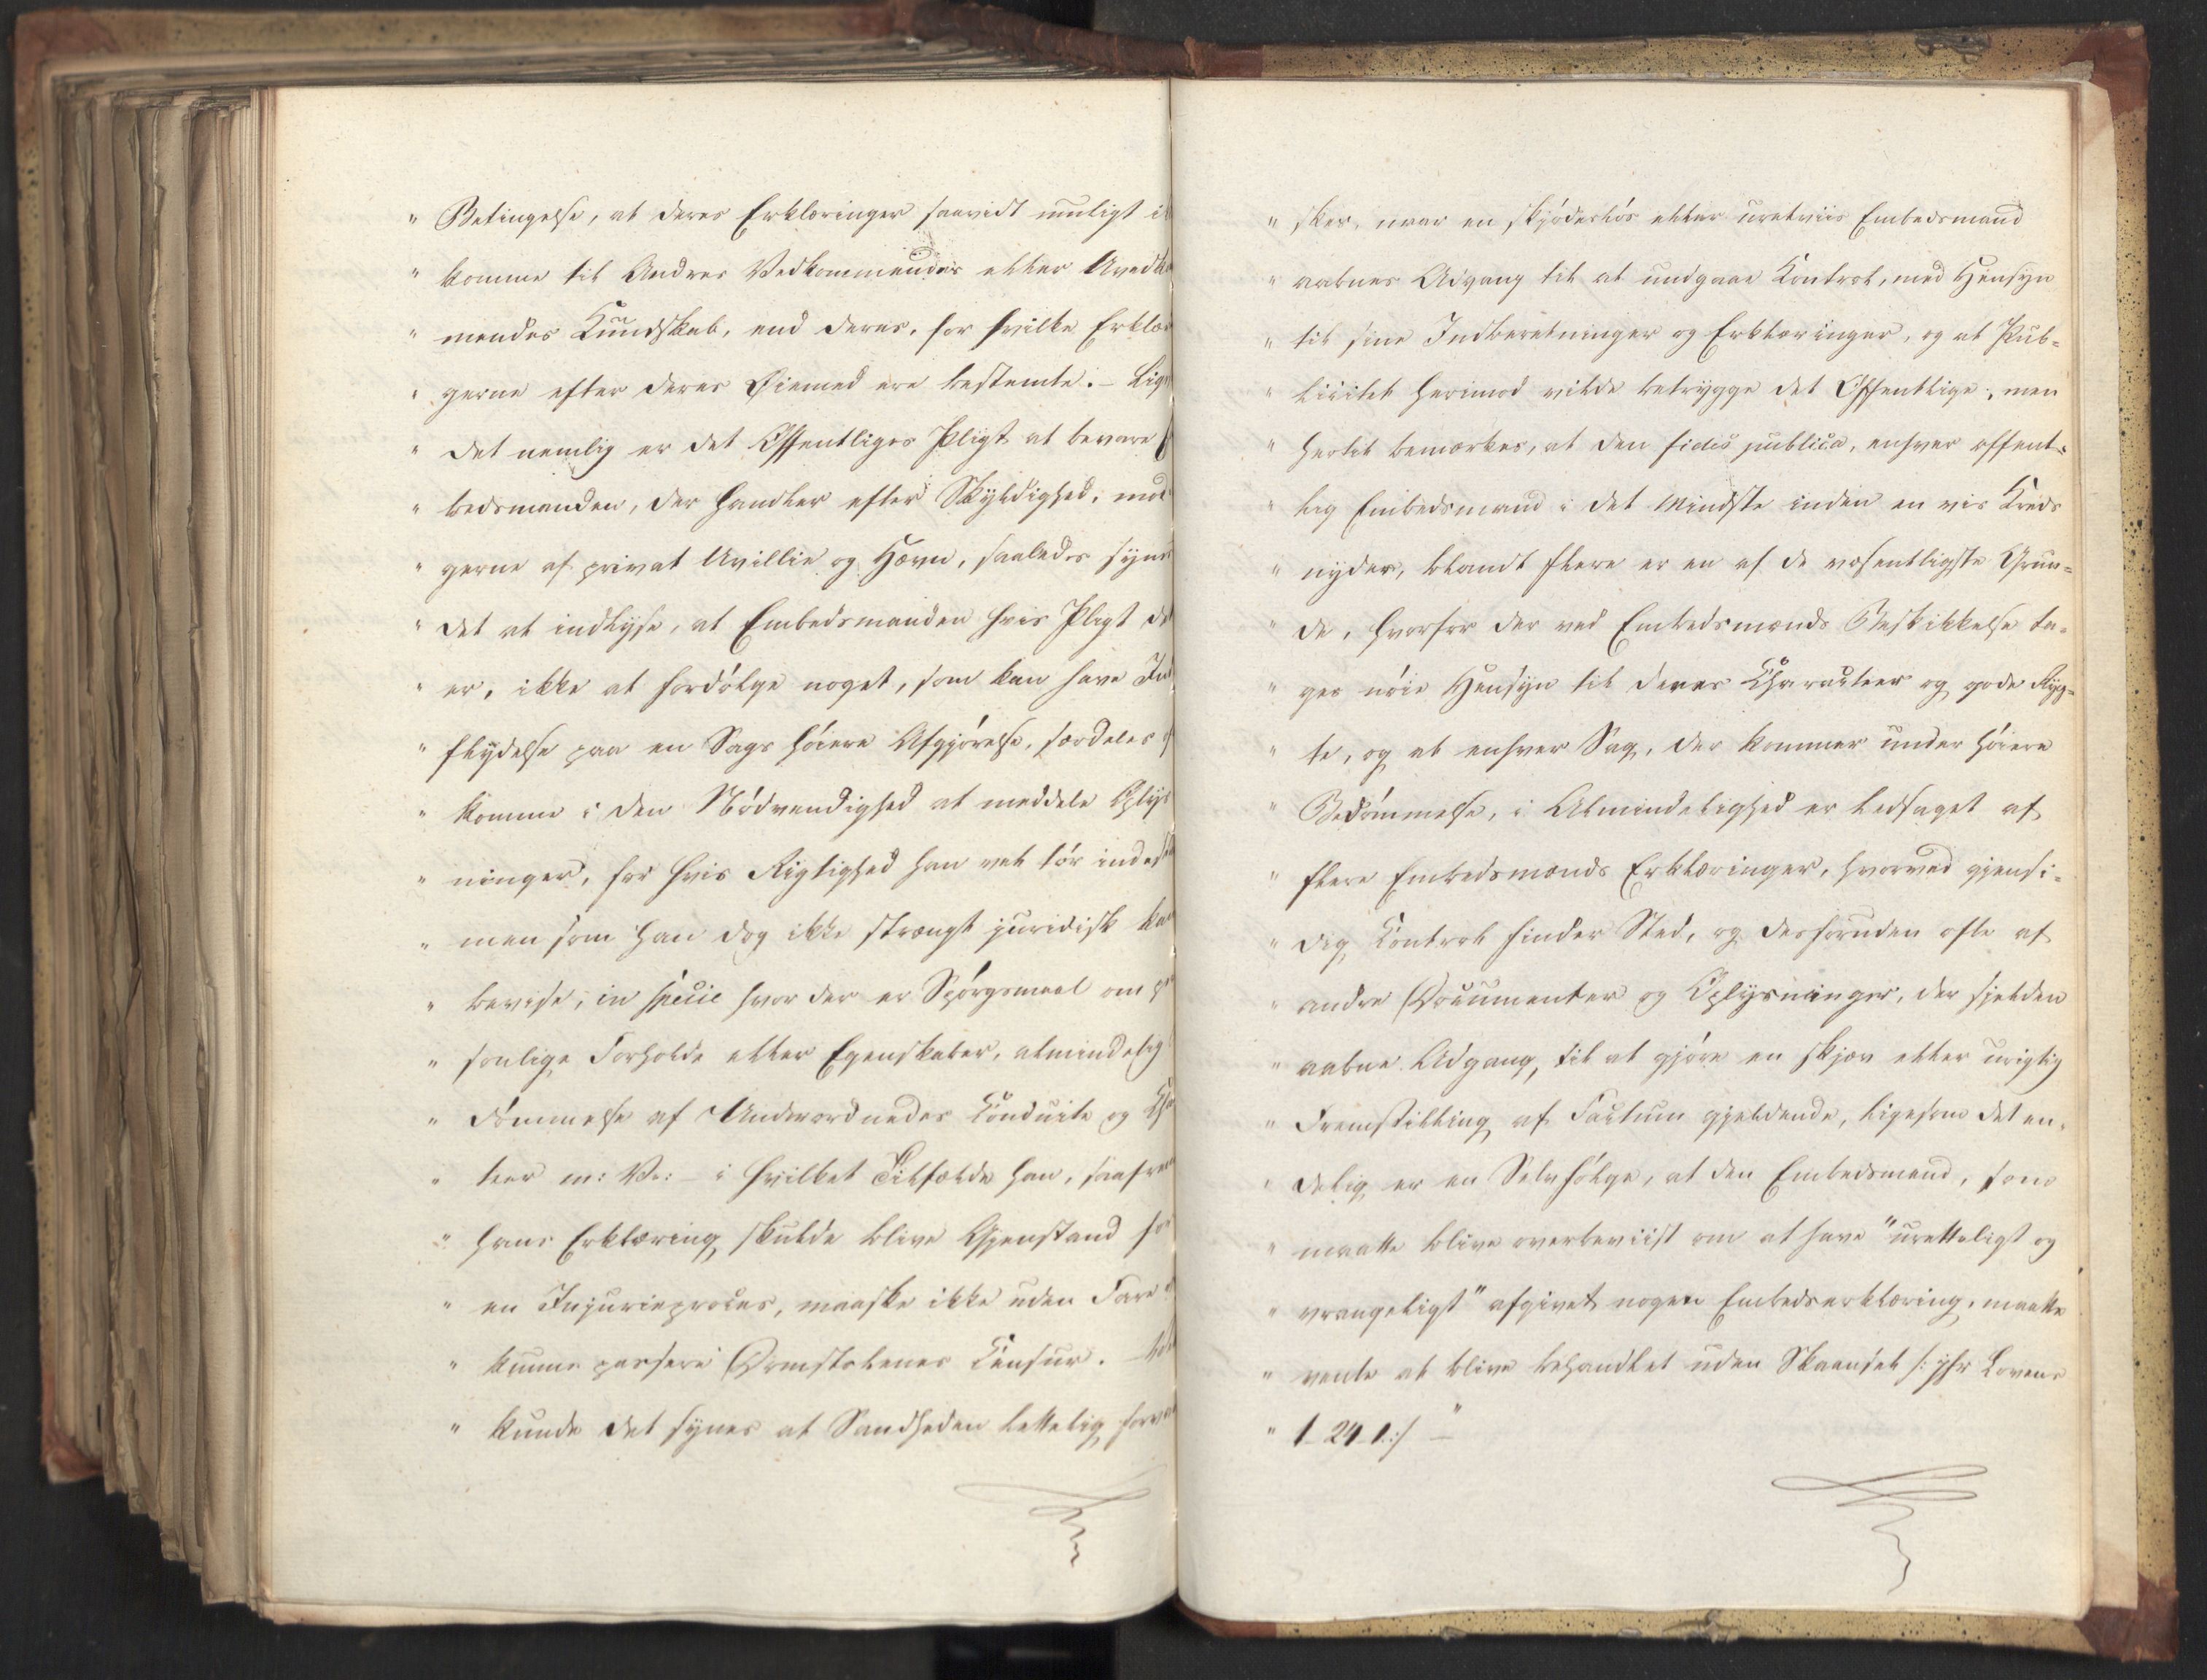 " Betingelse, at deres Erklæringer saavidt muligt i
" komme til Andres Vedkommendes eller Uvedko
" mendes Kundskab, end deres, for hvilke Erklæ
" gerne efter deres Øiemed ere bestemte. – Lige
" det nemlig er det Offentliges Pligt at bevare
" bedsmanden, der handler efter Skyldighed, mod
" gerne af privat Uvillie og Hævn, saaledes synes
" det at indlyse, at Embedsmanden hvis Pligt det
" er, ikke at fordølge noget, som kan have Ind
" flydelse paa en Sags høiere Afgjørelse, særdeles
" komme i den Nødvendighed at meddele Oplys
" ninger, for hvis Rigtighed han vel tør indestaae
" men som han dog ikke strængt juridisk kan
" bevise, in specie hvor der er Spørgsmaal om per
" sonlige Forholde eller Egenskaber, almindelig
" dømmelse af Underordnedes Conduite og Cha
" teer m: V: – i hvilket Tilfælde han, saafremt
" hans Erklæring skulde blive Gjenstand for
" en Injurieproces, maaskee ikke uden Fare
" kunne passere Domstolenes Censur. –
" kunde det synes at Sandheden lettelig
" skes, naar en skjødesløs eller uretviis Embedsmand
" aabnes Adgang til at undgaae Control, med Hensyn
" til sine Indberetninger og Erklæringer, og at Pub=
" licitet herimod vilde betrygge det Offentlige; men
" hertil bemærkes, at den fides publica, enhver offent=
" lig Embedsmand i det Mindste inden en vis Kreds
" nyder, blandt flere er en af de væsentligste Grun=
" de, hvorfor der ved Embedsmænds Beskikkelse ta=
" ges nøie Hensyn til deres Charakteer og gode Ryg=
" te, og at enhver Sag, der kommer under høiere
" Bedømmelse, i Almindelighed er ledsaget af
" flere Embedsmænds Erklæringer, hvorved gjensi=
" dig Control finder Sted, og desforuden ofte af
" andre Documenter og Oplysninger, der sjelden
" aabne Adgang, til at gjøre en skjæv eller urigtig
" Fremstilling af Factum gjeldende, ligesom det en=
" delig er en Selvfølge, at den Embedsmand, som
" maatte blive overbeviist om at have "uretteligt og
" vrangeligt" afgivet nogen Embedserklæring, maatte
" vente at blive behandlet uden Skaansel /: jfr Lovens
" 1–24–1:/ – "